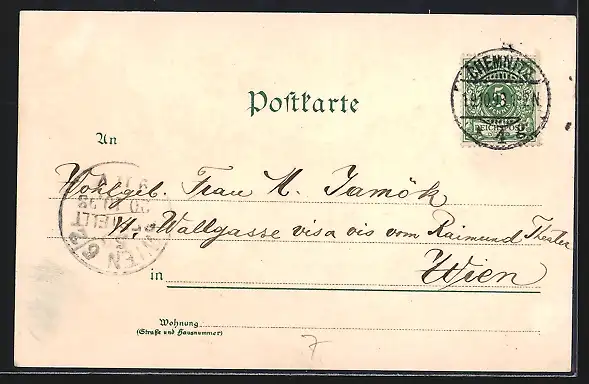 Postkarte
CHEMNITZ
19.10.98.
4 g
5
REICHSPOST
An
Wohlgeb. Frau M. Jamök
Wallgasse vis a vis vom Raimund Theater
in Wien
WIEN 6/2
BESTELLT
Wohnung
(Straße und Hausnummer)
7